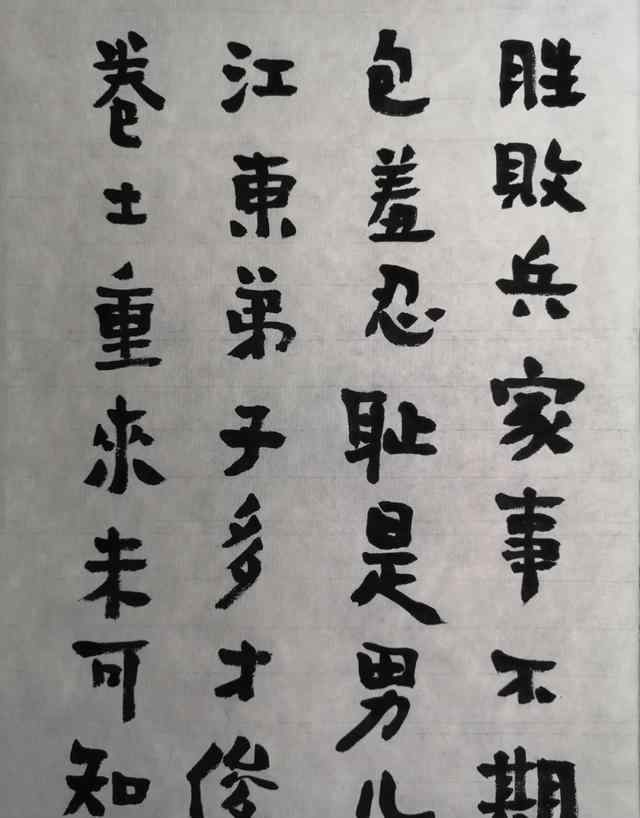 胜敗兵家事不期
包羞忍耻是男儿
江東弟子多才俊
卷土重來未可知